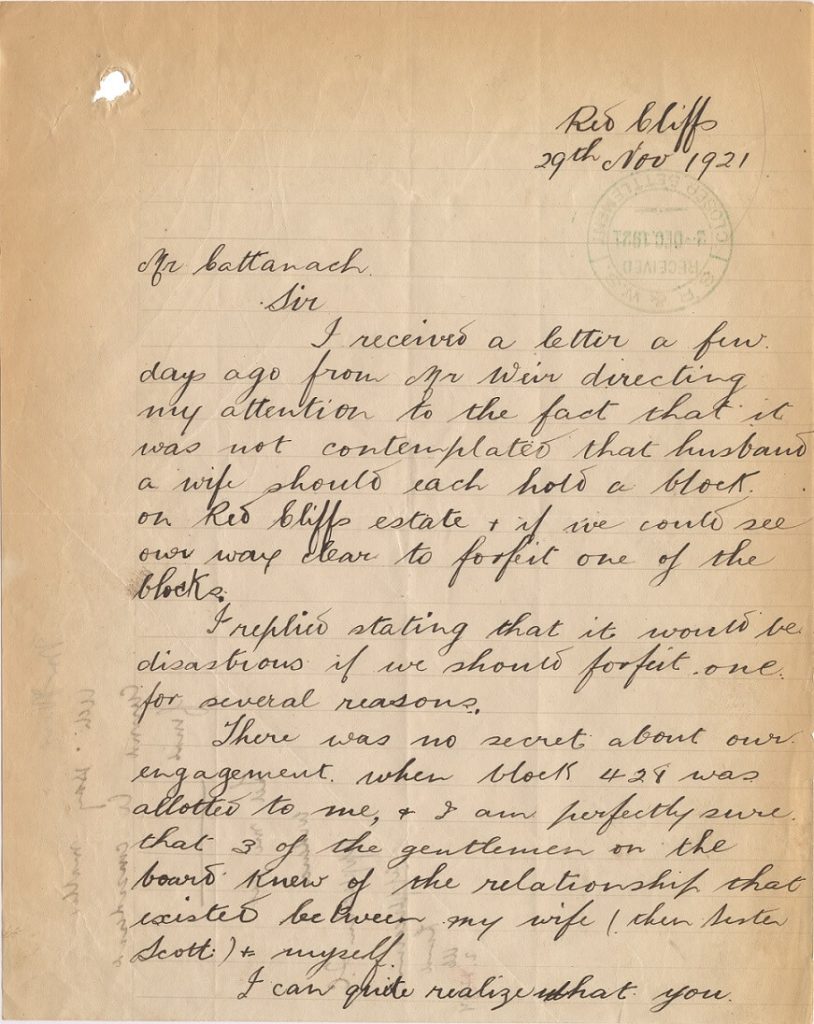 Red Cliffs
29th Nov 1921
CLOSER SETTLEMENT
2 - DEC. 1921
RECEIVED
S.R. & W.S.C.
Mr Cattanach.
Sir
I received a letter a few
days ago from Mr Weir directing
my attention to the fact that it
was not contemplated that husband
a wife should each hold a block.
on Red Cliffs estate + if we could see
our way clear to forfeit one of the
blocks.
I replied stating that it would be
disastrous if we should forfeit one.
for several reasons.
There was no secret about our
engagement. when block 429 was
allotted to me, + I am perfectly sure.
that 3 of the gentlemen on the
board knew of the relationship that
existed between my wife (then Sister
Scott) + myself.
I can quite realize that you.